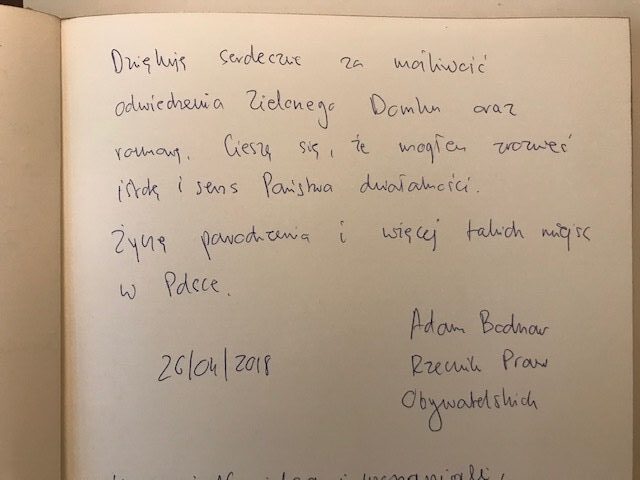 Dziękuję serdecznie za możliwość
odwiedzenia Zielonego Domku oraz
rozmowę. Cieszę się, że mogłem zrozumieć
istotę i sens Państwa działalności.
Życzę powodzenia i więcej takich miejsc
w Polsce.
Adam Bodnar
26/04/2018
Rzecznik Praw
Obywatelskich